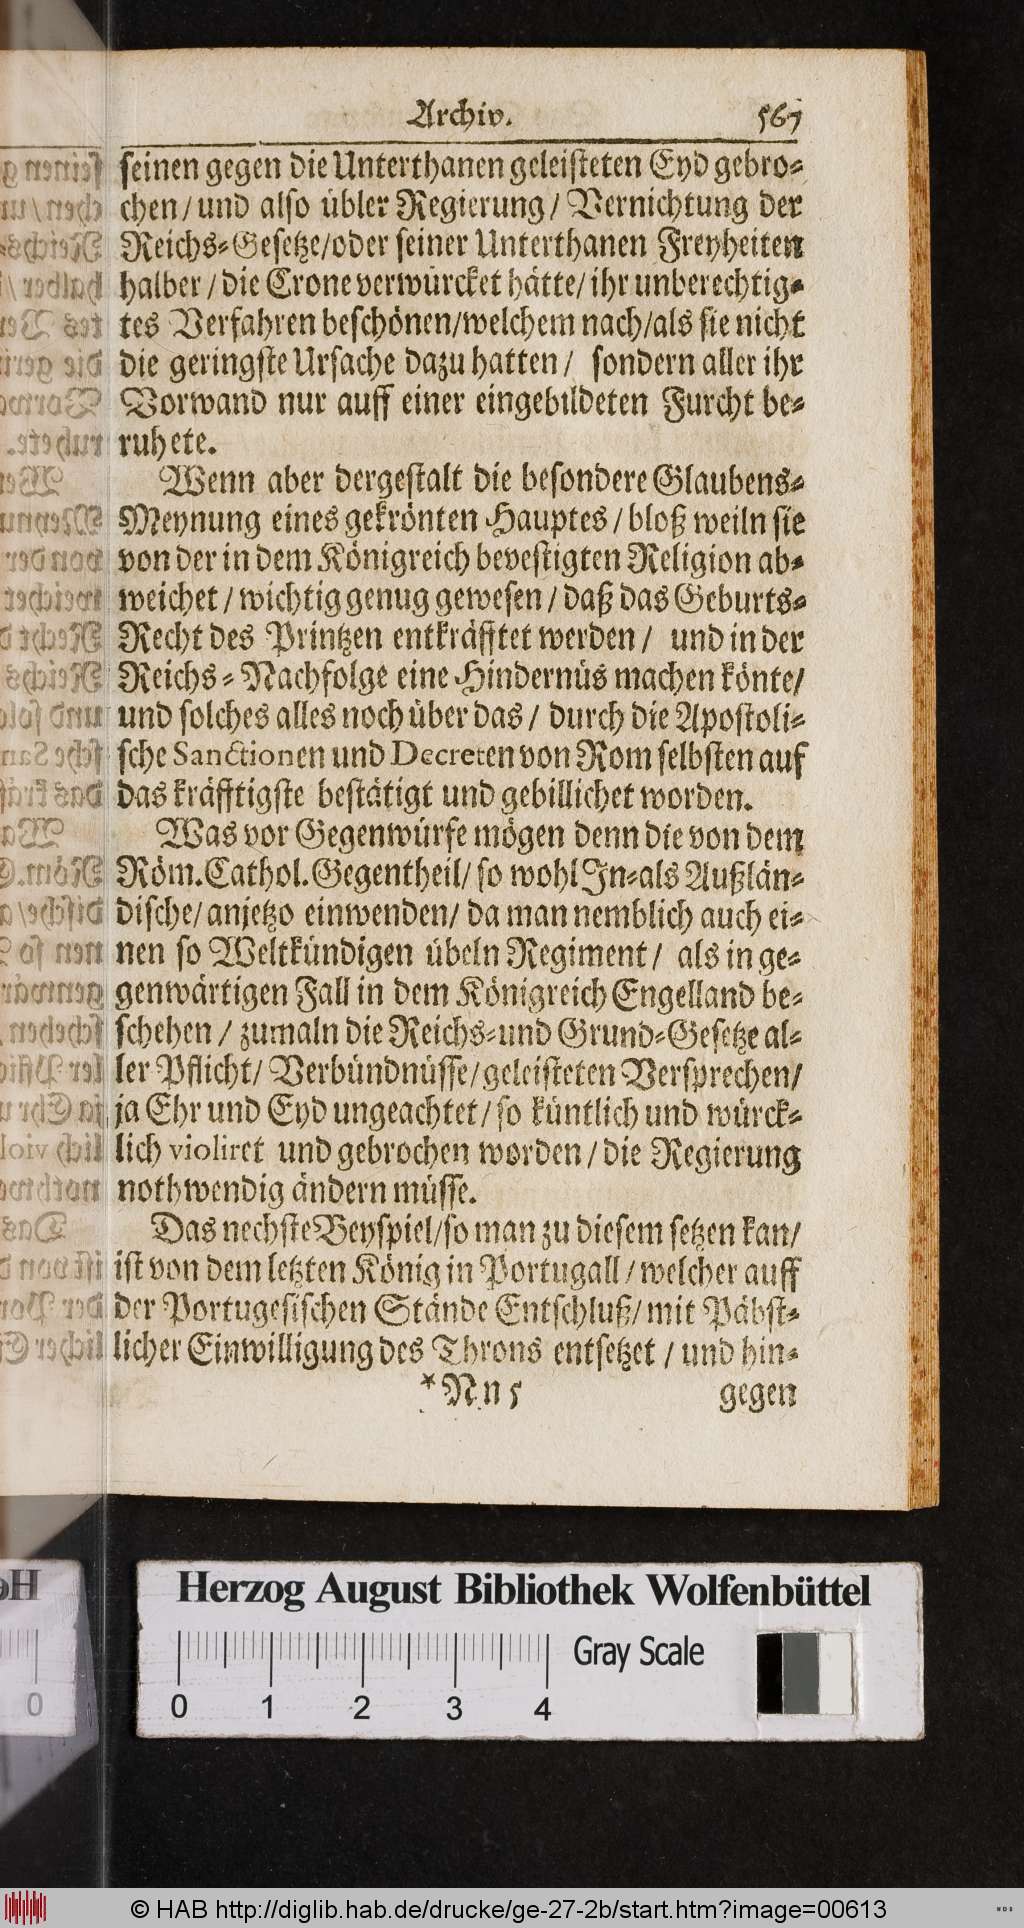 Archiv. 567
seinen gegen die Unterthanen geleisteten Eyd gebro-
chen/ und also übler Regierung/ Vernichtung der
Reichs-Gesetze/oder seiner Unterthanen Freyheiten
halber / die Crone verwürcket hätte/ ihr unberechtig-
tes Verfahren beschönen/welchem nach/als sie nicht
die geringste Ursache dazu hatten / sondern aller ihr
Vorwand nur auff einer eingebildeten Furcht be-
ruhete.
Wenn aber dergestalt die besondere Glaubens-
Meynung eines gekrönten Hauptes / bloß weiln sie
von der in dem Königreich bevestigten Religion ab-
weichet / wichtig genug gewesen / daß das Geburts-
Recht des Printzen entkräfftet werden / und in der
Reichs-Nachfolge eine Hindernüs machen könte/
und solches alles noch über das / durch die Apostoli-
sche Sanctionen und Decreten von Rom selbsten auf
das kräfftigste bestätigt und gebillichet worden.
Was vor Gegenwürfe mögen denn die von dem
Röm. Cathol. Gegentheil/ so wohl In-als Außlän-
dische/ anjetzo einwenden/ da man nemblich auch ei-
nen so Weltkündigen übeln Regiment / als in ge-
genwärtigen Fall in dem Königreich Engelland be-
schehen / zumaln die Reichs-und Grund-Gesetze al-
ler Pflicht/ Verbündnüsse/ geleisteten Versprechen/
ja Ehr und Eyd ungeachtet/ so küntlich und würck-
lich violiret und gebrochen worden / die Regierung
nothwendig ändern müsse.
Das nechste Beyspiel/so man zu diesem setzen kan/
ist von dem letzten König in Portugall / welcher auff
der Portugesischen Stände Entschluß/ mit Päbst-
licher Einwilligung des Throns entsetzet / und hin-
*N n 5 gegen
Herzog August Bibliothek Wolfenbüttel
Gray Scale
0 1 2 3 4
© HAB http://diglib.hab.de/drucke/ge-27-2b/start.htm?image=00613